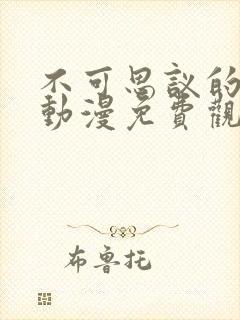 不可思议的
動漫免費觀
布鲁托